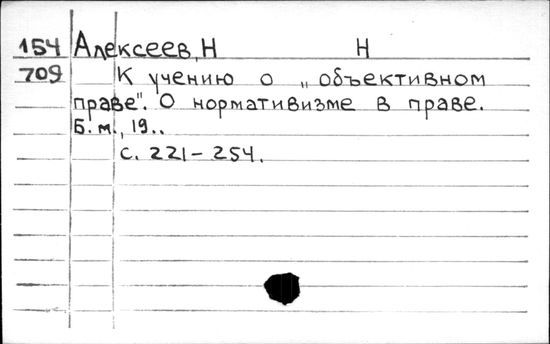 154 Алексеев, Н Н
709 К учению о „объективном
праве". О нормативизме в праве.
Б. м., 19..
с. 221-254.